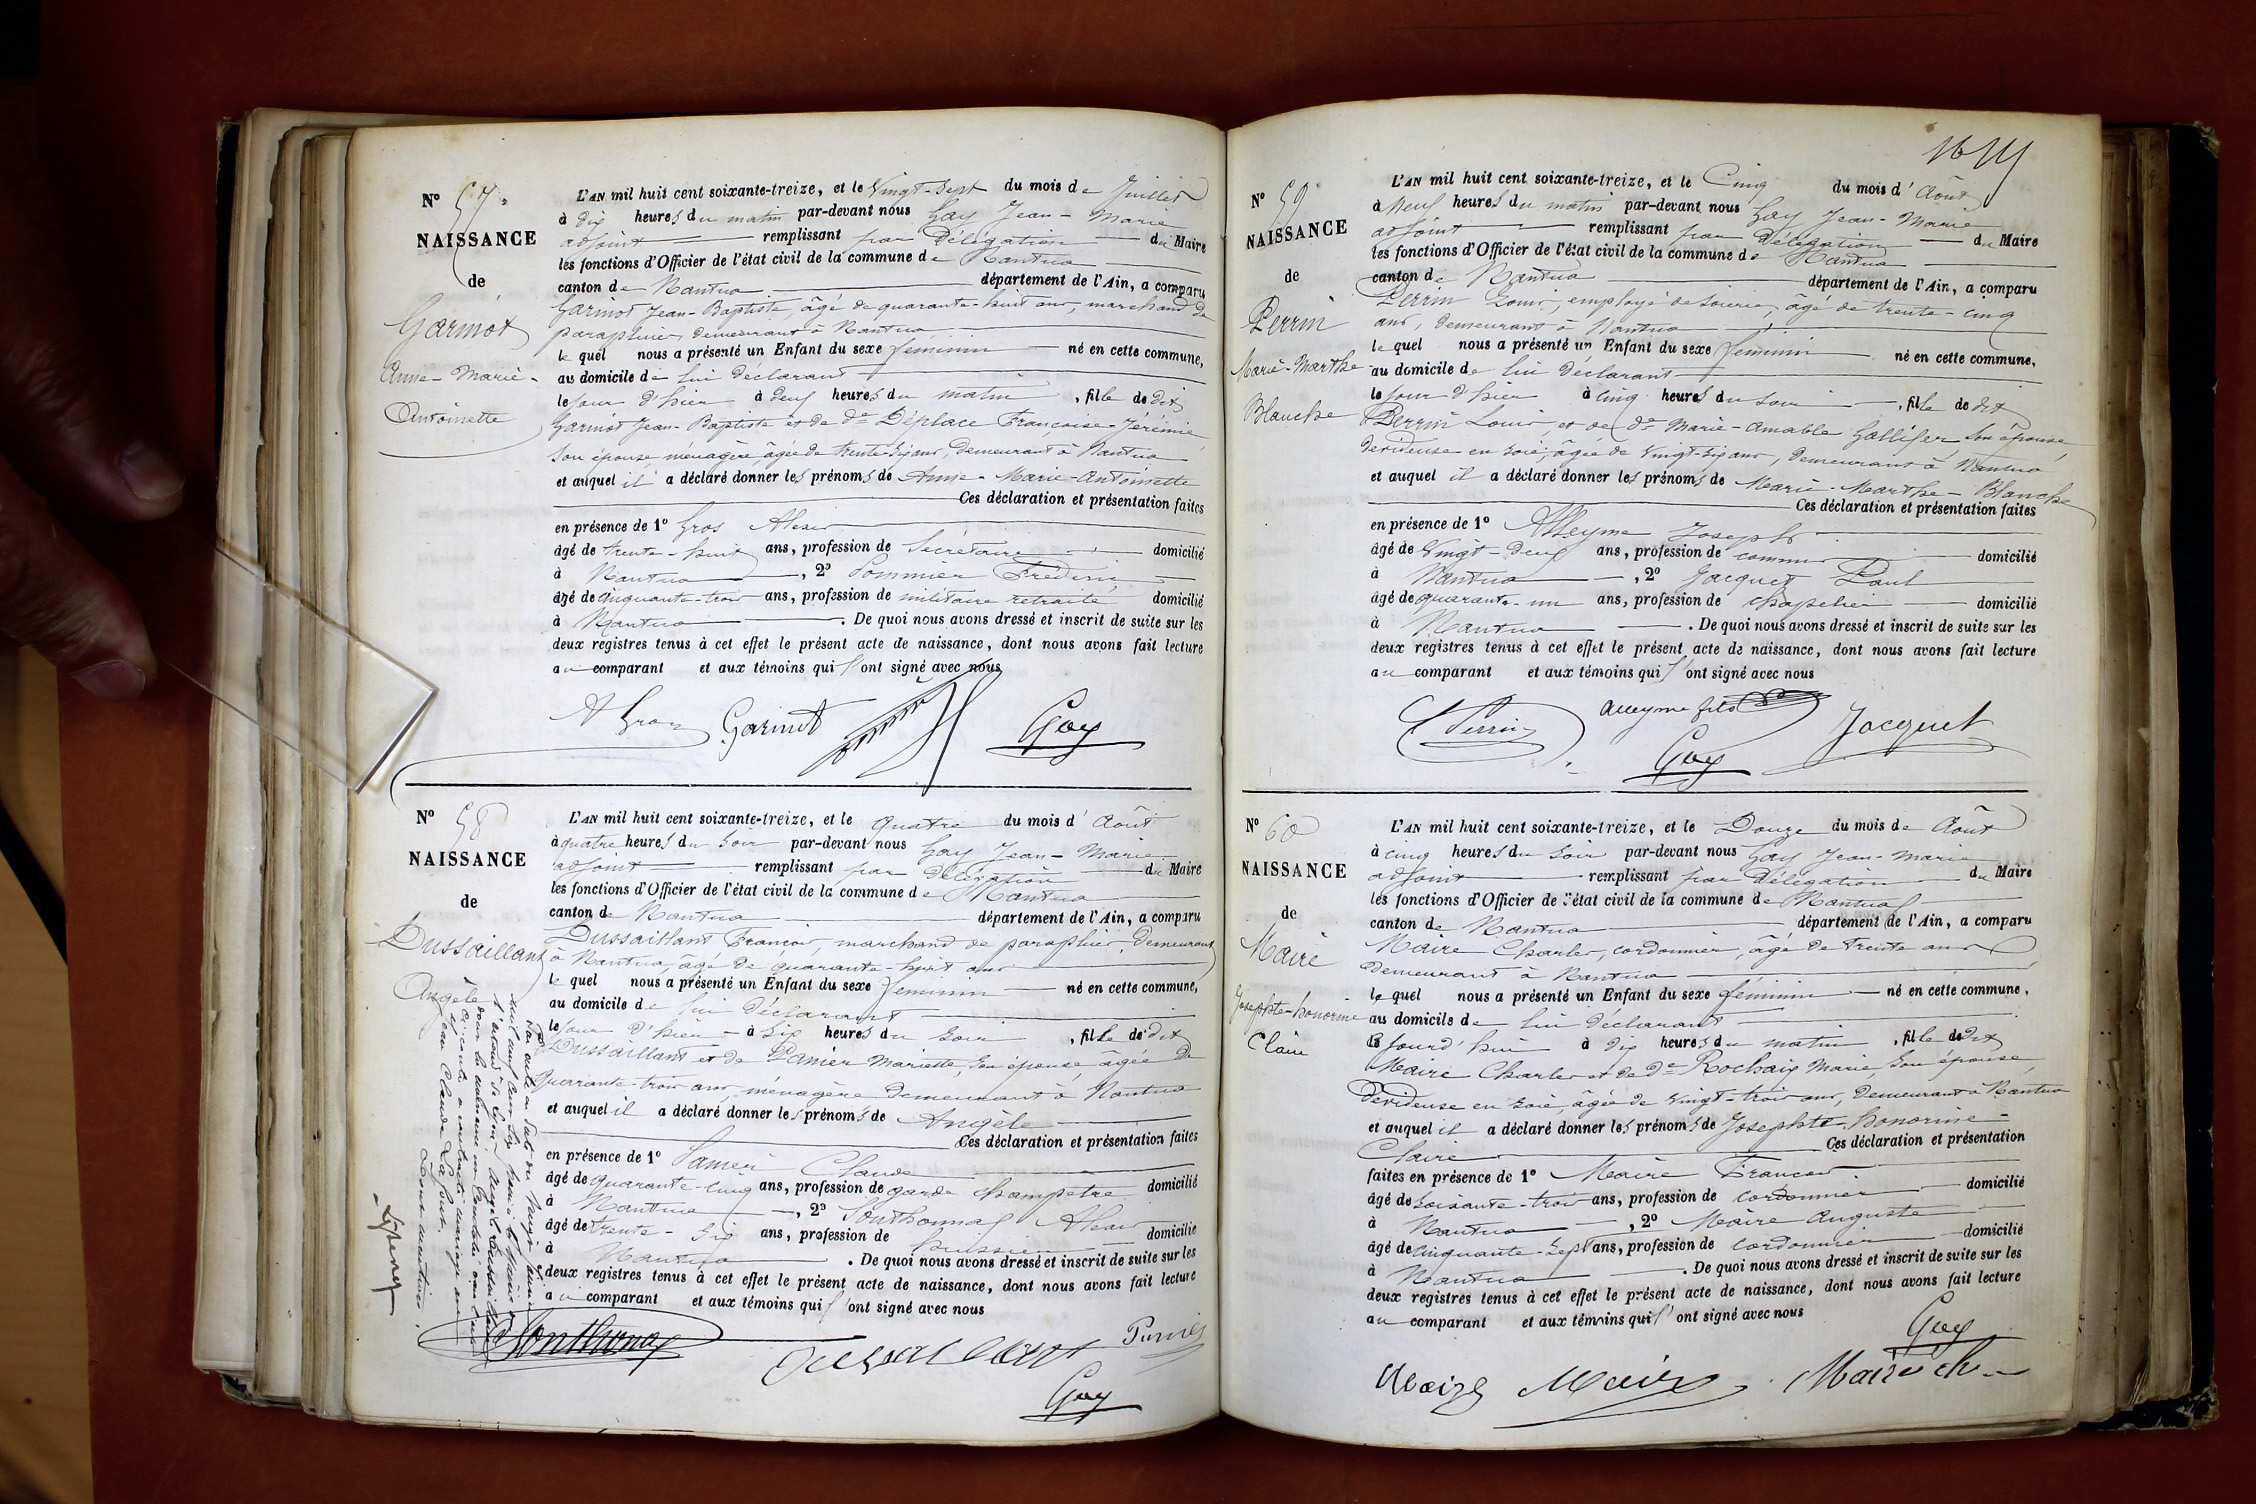 Nº 57.
NAISSANCE
de
Garinot
Anne-Marie-
Antoinette
L'AN mil huit cent soixante-treize, et le Vingt-Sept du mois de Juillet
à dix heures du matin par-devant nous Gay Jean-Marie
adjoint remplissant par Délégation du Maire
les fonctions d'Officier de l'état civil de la commune de Nantua
canton de Nantua département de l'Ain, a comparu
Garinot Jean-Baptiste, âgé de quarante-huit ans, marchand de
parapluies demeurant à Nantua
le quel nous a présenté un Enfant du sexe féminin né en cette commune,
au domicile de lui déclarant
le jour d'hier à deux heures du matin, fille de dit
Garinot Jean-Baptiste et de de Déplace Françoise-Jérémie
Son épouse ménagère âgée de trente-six ans, demeurant à Nantua
et auquel il a déclaré donner les prénoms de Anne-Marie-Antoinette
Ces déclaration et présentation faites
en présence de 1º Gros Alexis
âgé de trente-huit ans, profession de Secrétaire domicilié
à Nantua, 2º Pommier Frédéric
âgé de cinquante-trois ans, profession de militaire retraité domicilié
à Nantua. De quoi nous avons dressé et inscrit de suite sur les
deux registres tenus à cet effet le présent acte de naissance, dont nous avons fait lecture
au comparant et aux témoins qui l'ont signé avec nous
A Gros Garinot Gay
Nº 58
NAISSANCE
de
Dussaillant
Angèle
L'AN mil huit cent soixante-treize, et le quatre du mois d'Août
à quatre heures du Soir par-devant nous Gay Jean-Marie
adjoint remplissant par délégation du Maire
les fonctions d'Officier de l'état civil de la commune de Nantua
canton de Nantua département de l'Ain, a comparu
Dussaillant François, marchand de parapluies, demeurant
à Nantua, âgé de quarante-huit ans
le quel nous a présenté un Enfant du sexe féminin né en cette commune,
au domicile de lui déclarant
le jour d'hier à six heures du Soir, fille de dit
Dussaillant et de Panier Mariette, son épouse, âgée de
Quarante-trois ans, ménagère demeurant à Nantua
et auquel il a déclaré donner les prénoms de Angèle
Ces déclaration et présentation faites
en présence de 1º Claude
âgé de quarante-cinq ans, profession de garde champêtre domicilié
à Nantua, 2º Sonthonnax Alexis
âgé de trente-six ans, profession de huissier domicilié
à Nantua. De quoi nous avons dressé et inscrit de suite sur les
deux registres tenus à cet effet le présent acte de naissance, dont nous avons fait lecture
au comparant et aux témoins qui l'ont signé avec nous
Sonthonax Dussaillant
Gay
Nº 59
NAISSANCE
de
Perrin
Marie-Marthe
Blanche
L'AN mil huit cent soixante-treize, et le Cinq du mois d'Août
à Neuf heures du matin par-devant nous Gay Jean-Marie
adjoint remplissant par Délégation du Maire
les fonctions d'Officier de l'état civil de la commune de Nantua
canton de Nantua département de l'Ain, a comparu
Perrin Louis, employé de soierie, âgé de trente-cinq
ans, demeurant à Nantua
le quel nous a présenté un Enfant du sexe féminin né en cette commune,
au domicile de lui déclarant
le jour d'hier à cinq heures du Soir, fille de dit
Perrin Louis et de de Marie-Amable Golliser Son épouse
devideuse en soie, âgée de Vingt-six ans, demeurant à Nantua
et auquel il a déclaré donner les prénoms de Marie-Marthe-Blanche
Ces déclaration et présentation faites
en présence de 1º Alleyme Joseph
âgé de Vingt-deux ans, profession de commis domicilié
à Nantua, 2º Jacquet Paul
âgé de quarante-un ans, profession de chapelier domicilié
à Nantua. De quoi nous avons dressé et inscrit de suite sur les
deux registres tenus à cet effet le présent acte de naissance, dont nous avons fait lecture
au comparant et aux témoins qui l'ont signé avec nous
L Perrin Alleyme fils Jacquet
Gay
Nº 60
NAISSANCE
de
Maire
Josephte-honorine
Claire
L'AN mil huit cent soixante-treize, et le Douze du mois de Août
à cinq heures du Soir par-devant nous Gay Jean-Marie
adjoint remplissant par Délégation du Maire
les fonctions d'Officier de l'état civil de la commune de Nantua
canton de Nantua département de l'Ain, a comparu
Maire Charles, cordonnier, âgé de trente ans
demeurant à Nantua
le quel nous a présenté un Enfant du sexe féminin né en cette commune,
au domicile de lui déclarant
ce jourd'hui à dix heures du matin, fille de dit
Maire Charles et de de Rochaix Marie, Son épouse,
devideuse en soie, âgée de Vingt-trois ans, demeurant à Nantua
et auquel il a déclaré donner les prénoms de Josephte-honorine-
Claire Ces déclaration et présentation
faites en présence de 1º Maire François
âgé de soixante-trois ans, profession de cordonnier domicilié
à Nantua, 2º Maire Auguste
âgé de cinquante-Sept ans, profession de cordonnier domicilié
à Nantua. De quoi nous avons dressé et inscrit de suite sur les
deux registres tenus à cet effet le présent acte de naissance, dont nous avons fait lecture
au comparant et aux témoins qui l'ont signé avec nous
Gay
Maire Maire Maire ch